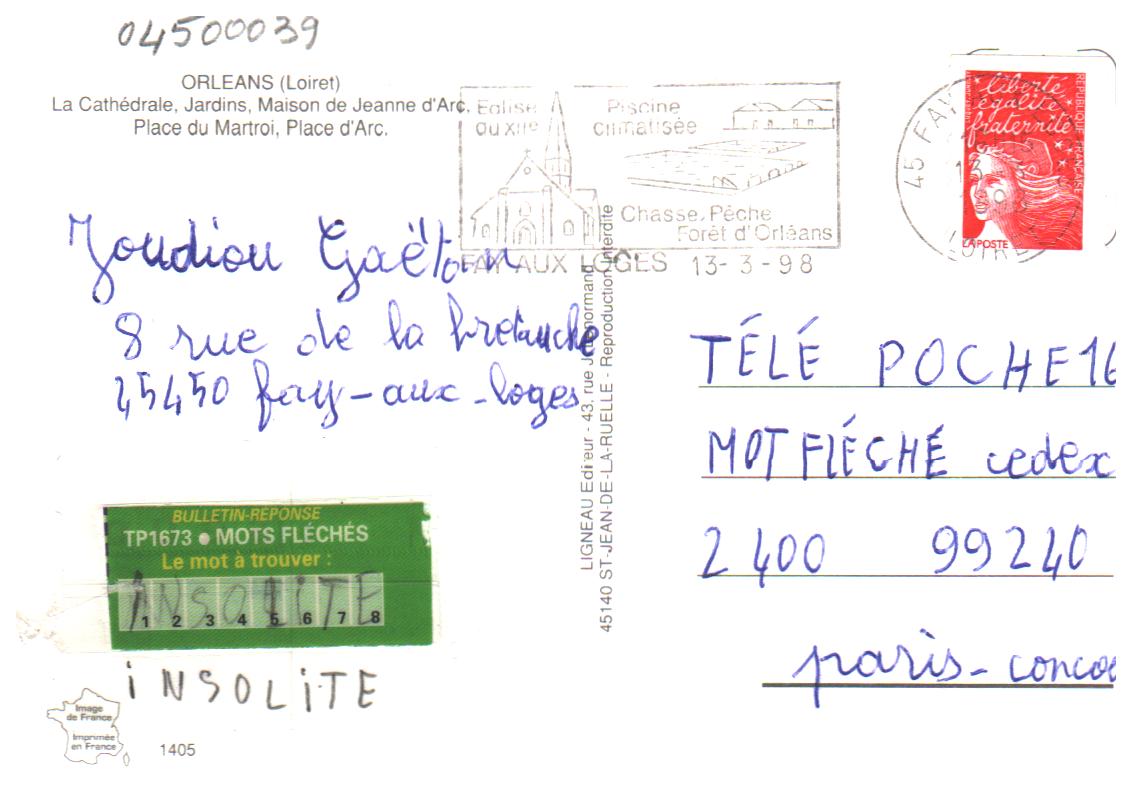 04500039
ORLEANS (Loiret)
La Cathédrale, Jardins, Maison de Jeanne d'Arc.
Place du Martroi, Place d'Arc.
Eglise
du XIIe
Piscine
climatisée
Chasse, Pêche
Forêt d'Orléans
FAY AUX LOGES 13-3-98
45 FAY
13
liberté
égalité
fraternité
RÉPUBLIQUE FRANÇAISE
LA POSTE
Gaëtan
8 rue de la bretauche
45450 fay-aux-loges
LIGNEAU Editeur - 43, rue
45140 ST-JEAN-DE-LA-RUELLE - Reproduction Interdite
TÉLÉ POCHE 16
MOT FLÉCHÉ cedex
2400 99240
paris-conco
BULLETIN-RÉPONSE
TP1673 • MOTS FLÉCHÉS
Le mot à trouver :
iNSOLiTE
1 2 3 4 5 6 7 8
iNSOLiTE
Image
de France
Imprimée
en France
1405